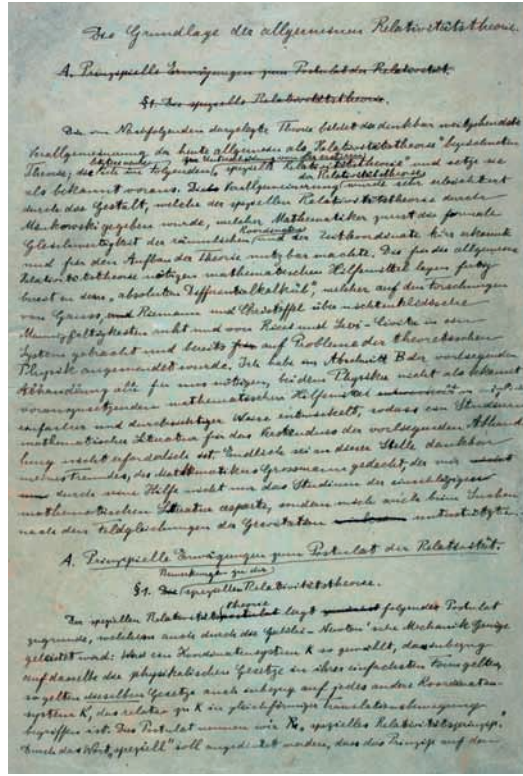 Die Grundlage der allgemeinen Relativitätstheorie.
A. Prinzipielle Erwägungen zum Postulat der Relativität.
§1. Die spezielle Relativitätstheorie.
Die im Nachfolgenden dargelegte Theorie bildet die denkbar weitgehendste
Verallgemeinerung der heute allgemein als „Relativitätstheorie" bezeichneten
Theorie; die im folgenden „spezielle Relativitätstheorie" und setze sie
als bekannt voraus. Die Verallgemeinerung der Relativitätstheorie wurde sehr erleichtert
durch die Gestalt, welche der speziellen Relativitätstheorie durch
Minkowski gegeben wurde, welcher Mathematiker zuerst die formale
Gleichwertigkeit der räumlichen Koordinaten und der Zeitkoordinate klar erkannte
und für den Aufbau der Theorie nutzbar machte. Die für die allgemeine
Relativitätstheorie nötigen mathematischen Hilfsmittel lagen fertig
bereit in dem „absoluten Differentialkalkül", welcher auf den Forschungen
von Gauss, und Riemann und Christoffel über nichteuklidische
Mannigfaltigkeiten ruht und von Ricci und Levi-Civita in ein
System gebracht und bereits auf Probleme der theoretischen
Physik angewendet wurde. Ich habe im Abschnitt B der vorliegenden
Abhandlung alle für uns nötigen, bei dem Physiker nicht als bekannt
vorauszusetzenden mathematischen Hilfsmittel in möglichst
einfacher und durchsichtiger Weise entwickelt, sodass ein Studium
mathematischer Literatur für das Verständnis der vorliegenden Abhand-
lung nicht erforderlich ist. Endlich sei an dieser Stelle dankbar
meines Freundes, des Mathematikers Grossmann gedacht, der mir
durch seine Hilfe nicht nur das Studium der einschlägigen
mathematischen Literatur ersparte, sondern mich auch beim Suchen
nach den Feldgleichungen der Gravitation unterstützte.
A. Prinzipielle Erwägungen zum Postulat der Relativität.
§1. Bemerkungen zu der speziellen Relativitätstheorie.
Der speziellen Relativitätstheorie liegt folgendes Postulat
zugrunde, welchem auch durch die Galilei-Newton'sche Mechanik Genüge
geleistet wird: Wird ein Koordinatensystem K so gewählt, dass inbezug
auf dasselbe die physikalischen Gesetze in ihrer einfachsten Form gelten,
so gelten dieselben Gesetze auch inbezug auf jedes andere Koordinaten-
system K', das relativ zu K in gleichförmiger Translationsbewegung
begriffen ist. Dies Postulat nennen wir „spezielles Relativitätsprinzip."
Durch das Wort „speziell" soll angedeutet werden, dass das Prinzip auf den